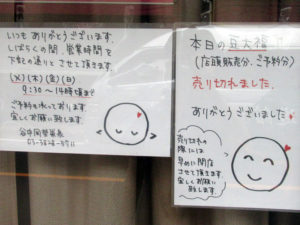 いつも ありがとうございます。
しばらくの間、営業時間を
下記の通りと させて頂きます。
(火)(木)(金)(日)
9:30 〜 14時頃まで
ご予約も承っております
宜しくお願い致します
本日の 豆大福
(店頭販売分、ご予約分)
売り切れました。
ありがとうございました。
売り切れの
際には
早めに閉店
させて頂きます。
宜しくお願い
致します。